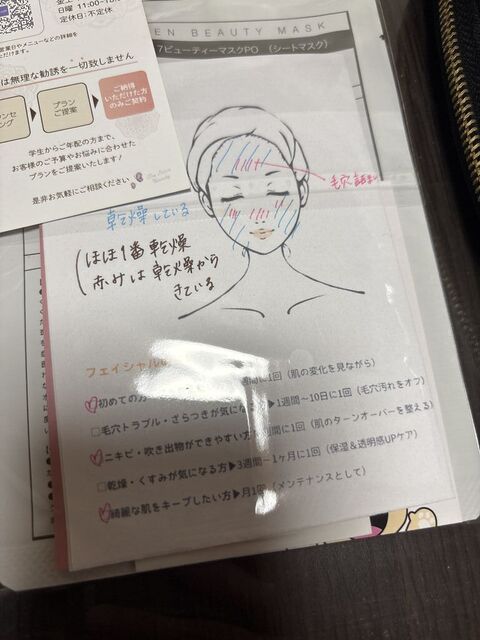 日曜 11:00-
定休日: 不定休
営業日やメニューなどの詳細を
は無理な勧誘を一切致しません
プラン
ご提案
ご納得
いただけた方
のみご契約
学生からご年配の方まで、
お客様のご予算やお悩みに合わせた
プランをご提案いたします!
是非お気軽にご相談ください
EN BEAUTY MASK
7ビューティーマスクPO (シートマスク)
毛穴詰まり
乾燥している
ほほ1番乾燥
赤みは乾燥から
きている
フェイシャル
初めての方
間に1回 (肌の変化を見ながら)
□毛穴トラブル・ざらつきが気に
▶1週間~10日に1回 (毛穴汚れをオフ)
ニキビ・吹き出物ができやすい方
間に1回 (肌のターンオーバーを整える)
□乾燥・くすみが気になる方▶3週間~1ヶ月に1回 (保湿&透明感UPケア)
綺麗な肌をキープしたい方▶月1回 (メンテナンスとして)